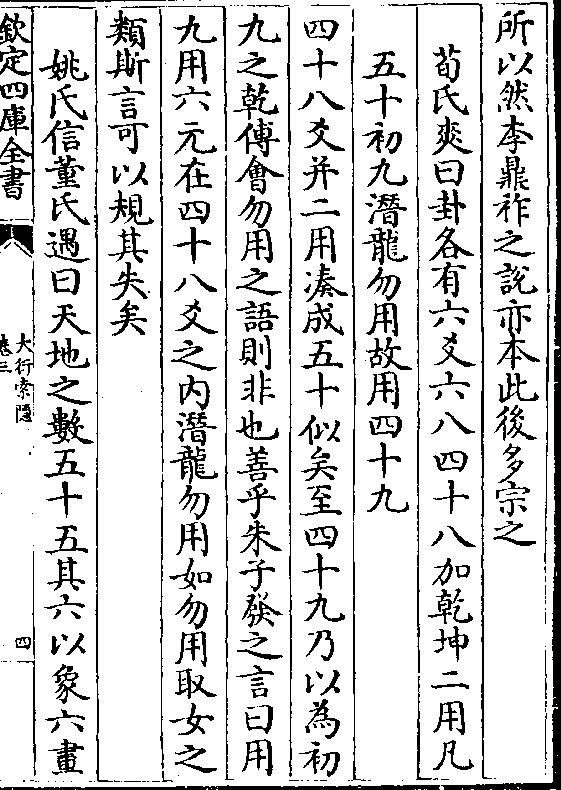 所以然李鼎祚之說亦本此後多宗之
荀氏爽曰卦各有六爻六八四十八加乾坤二用凡
五十初九潛龍勿用故用四十九
四十八爻并二用湊成五十似矣至四十九乃以為初
九之乾傅會勿用之語則非也善乎朱子發之言曰用
九用六元在四十八爻之内潛龍勿用如勿用取女之
類斯言可以規其失矣
姚氏信董氏遇曰天地之數五十五其六以象六畫
欽定四庫全書
大衍索隱
卷三
四